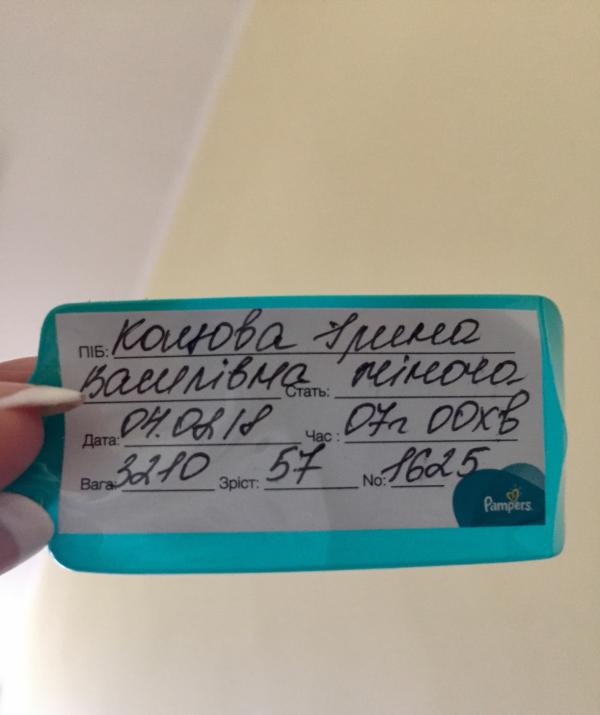 ПІБ: Концова Ірина
Василівна Стать: жіноча
Дата: 04.08.18 Час : 07г 00хв
Вага: 3210 Зріст: 57 No: 1625
Pampers